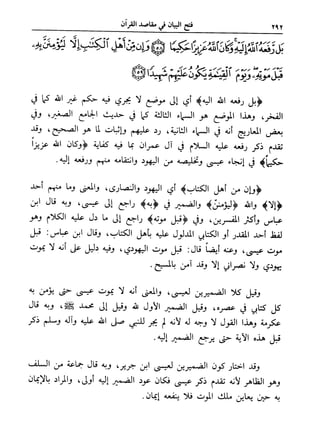 ٢٩٢ فتح البيان في مقاصد القرآن
بَل رَّفَعَهُ اللَّهُ إِلَيْهِ وَكَانَ اللَّهُ عَزِيزًا حَكِيمًا ﴿١٥٨﴾ وَإِن مِّنْ أَهْلِ الْكِتَابِ إِلَّا لَيُؤْمِنَنَّ بِهِ
قَبْلَ مَوْتِهِ وَيَوْمَ الْقِيَامَةِ يَكُونُ عَلَيْهِمْ شَهِيدًا ﴿١٥٩﴾
﴿بل رفعه الله اليه﴾ أي إلى موضع لا يجري فيه حكم غير الله كما في
الفخر، وهذا الموضع هو السماء الثالثة كما في حديث الجامع الصغير، وفي
بعض المعاريج أنه في السماء الثانية، رد عليهم وإثبات لما هو الصحيح، وقد
تقدم ذكر رفعه عليه السلام في آل عمران بما فيه كفاية ﴿وكان الله عزيزاً
حكيماً﴾ في إنجاء عيسى وتخليصه من اليهود وانتقامه منهم ورفعه إليه.
﴿وإن من أهل الكتاب﴾ أي اليهود والنصارى، والمعنى وما منهم أحد
﴿إلا﴾ والله ﴿ليؤمنن﴾ والضمير في ﴿به﴾ راجع إلى عيسى، وبه قال ابن
عباس وأكثر المفسرين، وفي ﴿قبل موته﴾ راجع إلى ما دل عليه الكلام وهو
لفظ أحد المقدر أو الكتابي المدلول عليه بأهل الكتاب، وقال ابن عباس: قبل
موت عيسى، وعنه أيضاً قال: قبل موت اليهودي، وفيه دليل على أنه لا يموت
يهودي ولا نصراني إلا وقد آمن بالمسيح.
وقيل كلا الضميرين لعيسى، والمعنى أنه لا يموت عيسى حتى يؤمن به
كل كتابي في عصره، وقيل الضمير الأول لله وقيل إلى محمد ﷺ، وبه قال
عكرمة وهذا القول لا وجه له لأنه لم يجر للنبي صلى الله عليه وآله وسلم ذكر
قبل هذه الآية حتى يرجع الضمير إليه.
وقد اختار كون الضميرين لعيسى ابن جرير، وبه قال جماعة من السلف
وهو الظاهر لأنه تقدم ذكر عيسى فكان عود الضمير إليه أولى، والمراد بالإيمان
به حين يعاين ملك الموت فلا ينفعه إيمان.